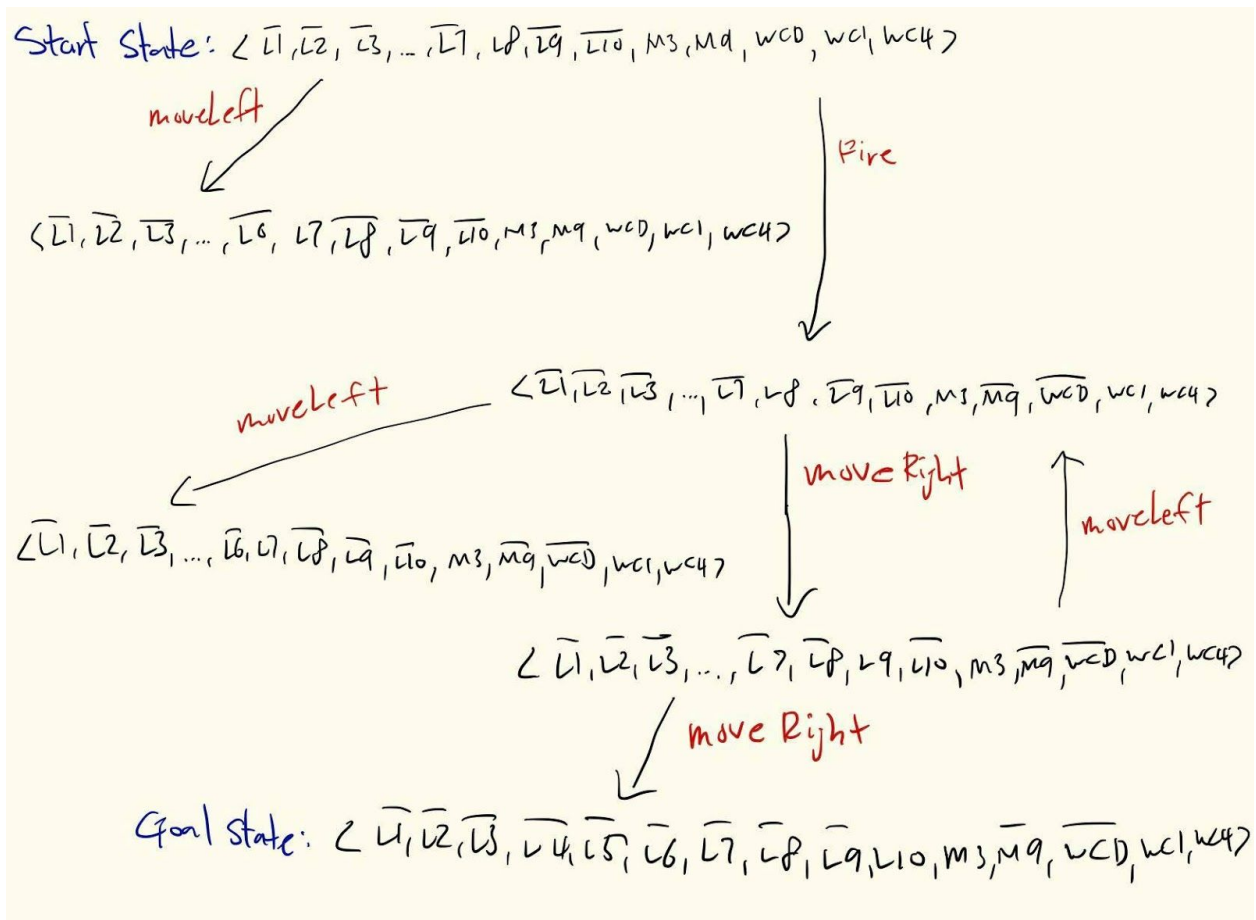 Start State: < L̅1̅, L̅2̅, L̅3̅, ... L̅7̅, L8, L̅9̅, L̅1̅0̅, M3, M9, WCD, WC1, WC4>
moveLeft
Fire
<L̅1̅, L̅2̅, L̅3̅, ..., L̅6̅, L7, L̅8̅, L̅9̅, L̅1̅0̅, M3, M9, WCD, WC1, WC4>
<L̅1̅, L̅2̅, L̅3̅, ..., L̅7̅, L8, L̅9̅, L̅1̅0̅, M3, M̅9̅, W̅C̅D̅, WC1, WC4>
moveLeft
move Right
moveLeft
<L̅1̅, L̅2̅, L̅3̅, ..., L̅6̅, L7, L̅8̅, L̅9̅, L̅1̅0̅, M3, M̅9̅, W̅C̅D̅, WC1, WC4>
< L̅1̅, L̅2̅, L̅3̅, ..., L̅7̅, L̅8̅, L9, L̅1̅0̅, M3, M̅9̅, W̅C̅D̅, WC1, WC4>
move Right
Goal State: < L̅1̅, L̅2̅, L̅3̅, L̅4̅, L̅5̅, L̅6̅, L̅7̅, L̅8̅, L̅9̅, L10, M3, M̅9̅, W̅C̅D̅, WC1, WC4>